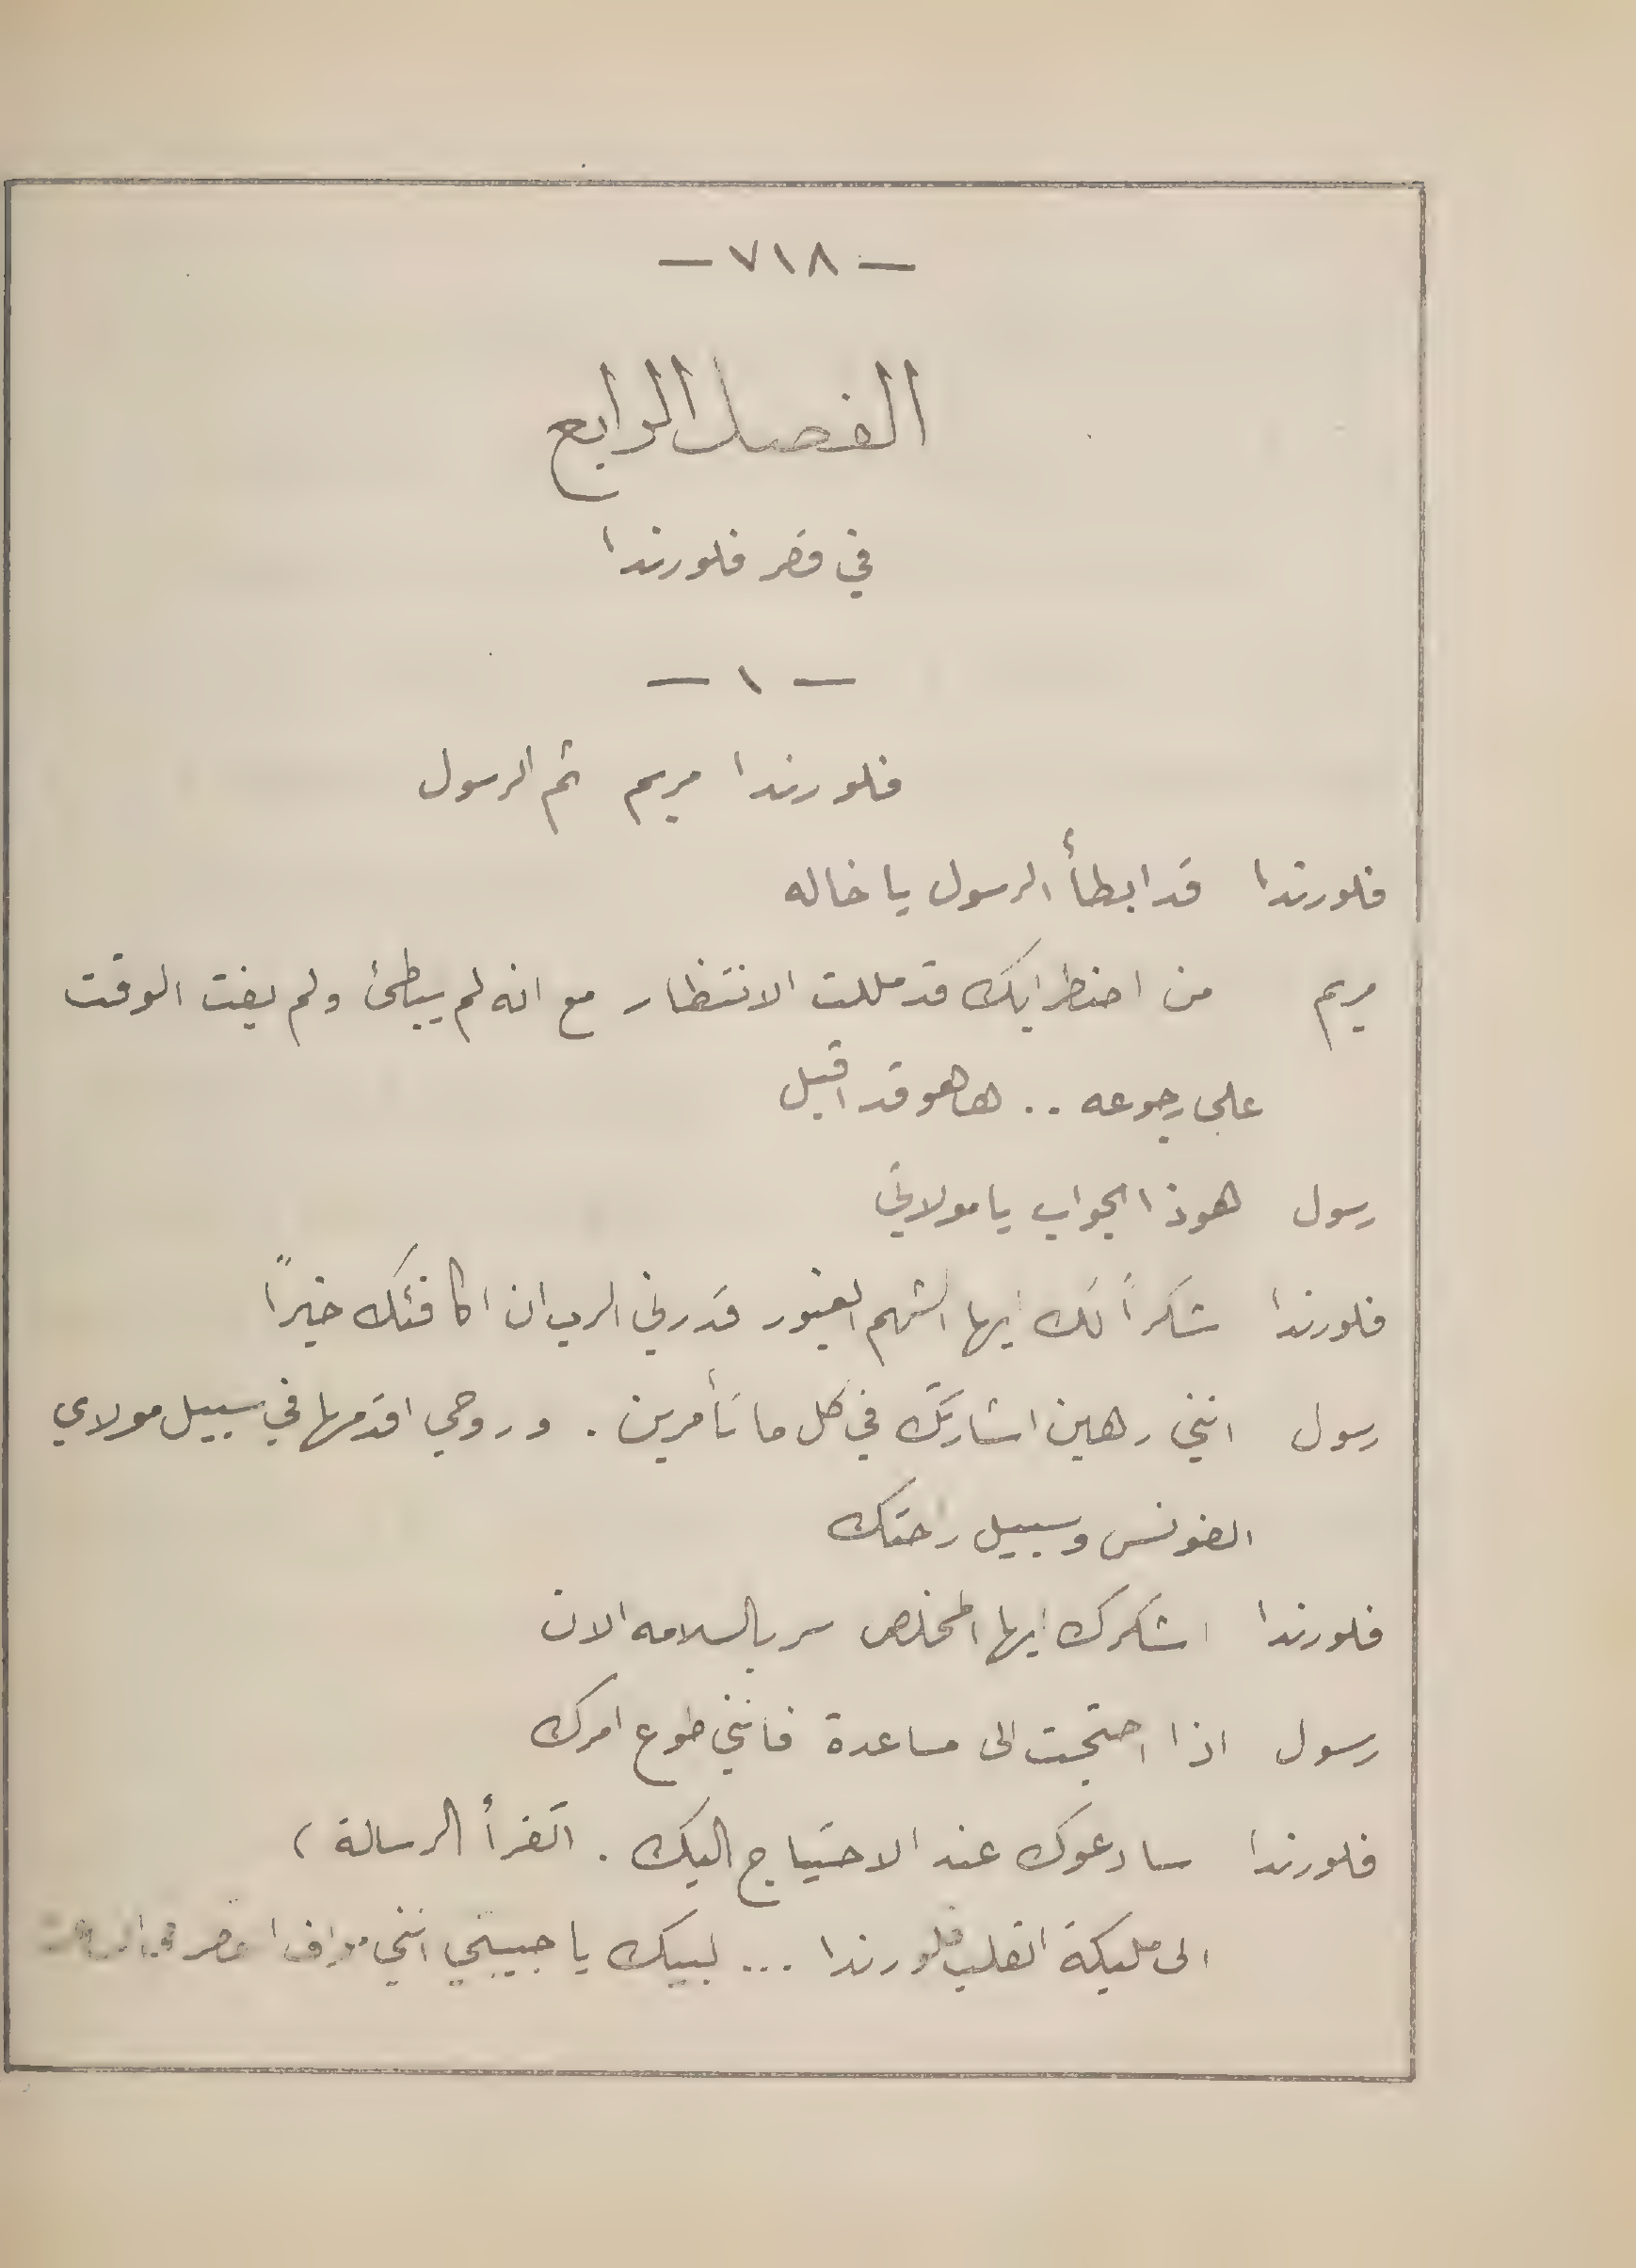 — ٧١٨ —
الفصل الرابع
في قصر فلورندا
— ١ —
فلورندا مريم ثم الرسول
فلورندا قد ابطأ الرسول يا خاله
مريم من اضطرابك قد مللت الانتظار مع انه لم يبطئ ولم يفت الوقت
على رجوعه .. ها هو قد اقبل
رسول هوذا الجواب يا مولاتي
فلورندا شكراً لك ايها الشهم الغيور قدرني الرب ان اكافئك خيراً
رسول انني رهين اشارتك في كل ما تأمرين . وروحي اقدمها في سبيل مولاي
الفونس وسبيل راحتك
فلورندا اشكرك ايها المخلص سر بالسلامه الان
رسول اذا احتجت الى مساعدة فانني طوع امرك
فلورندا سادعوك عند الاحتياج اليك . اتقرأ الرسالة )
الى مليكة القلب فلورندا ... لبيك يا حبيبتي انني مواف